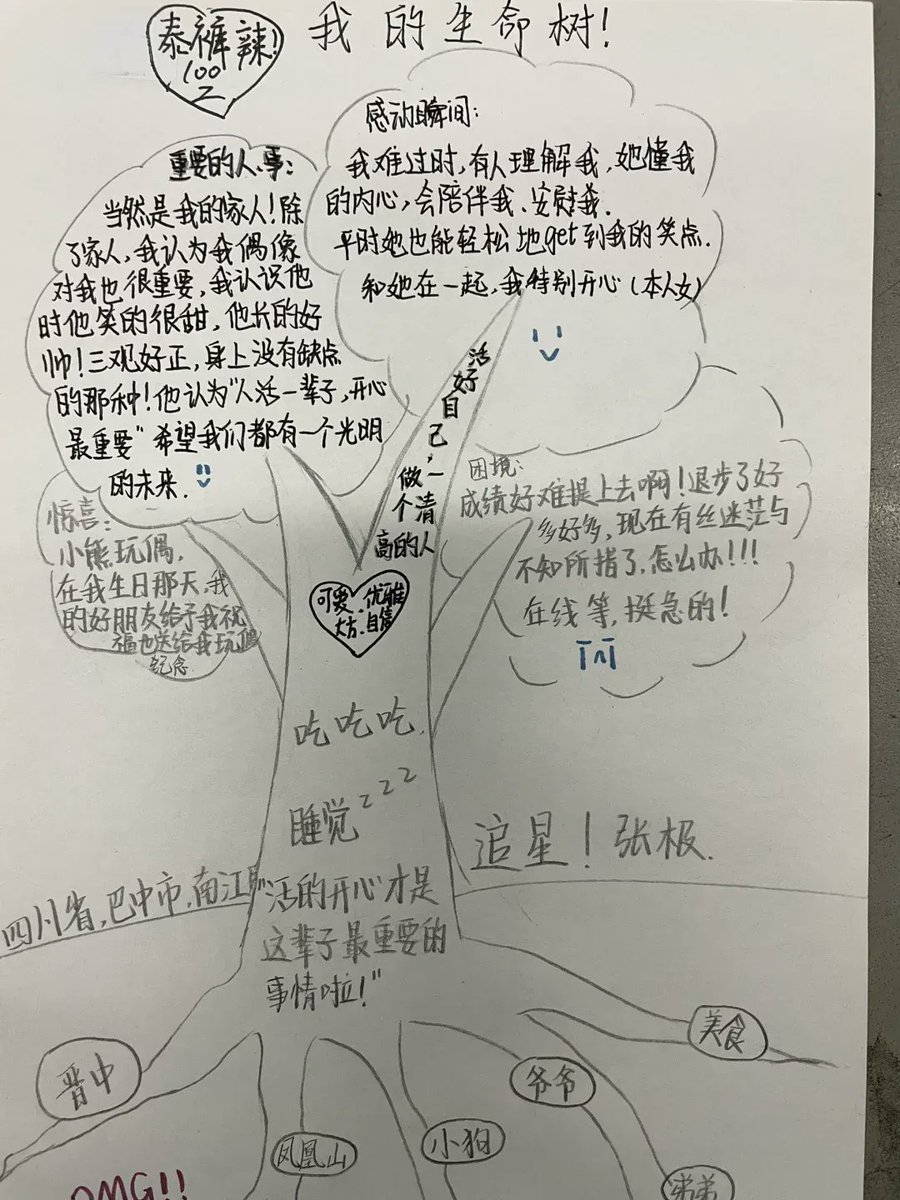 我的生命树!
泰裤辣!
100
Z
感动瞬间:
我难过时,有人理解我,她懂我
的内心,会陪伴我、安慰我.
平时她也能轻松地get到我的笑点.
和她在一起,我特别开心(本人女)
重要的人、事:
当然是我的家人!除
了家人,我认为我偶像
对我也很重要,我认识他
时他笑的很甜,他长的好
帅!三观好正,身上没有缺点
的那种!他认为“人活一辈子,开心
最重要”希望我们都有一个光明
的未来.
活好自己,
做一个清
高的人
困境:
成绩好难提上去啊!退步了好
多好多,现在有丝迷茫与
不知所指了.怎么办!!!
在线等,挺急的!
惊喜:
小熊玩偶,
在我生日那天,我
的好朋友给予我祝
福也送给我玩偶
纪念.
可爱、优雅
大方、自信
吃吃吃.
睡觉zzz
追星!张极.
四川省,巴中市,南江
“活的开心才是
这辈子最重要的
事情啦!”
美食
晋中
爷爷
小狗
凤凰山
弟弟
OMG!!